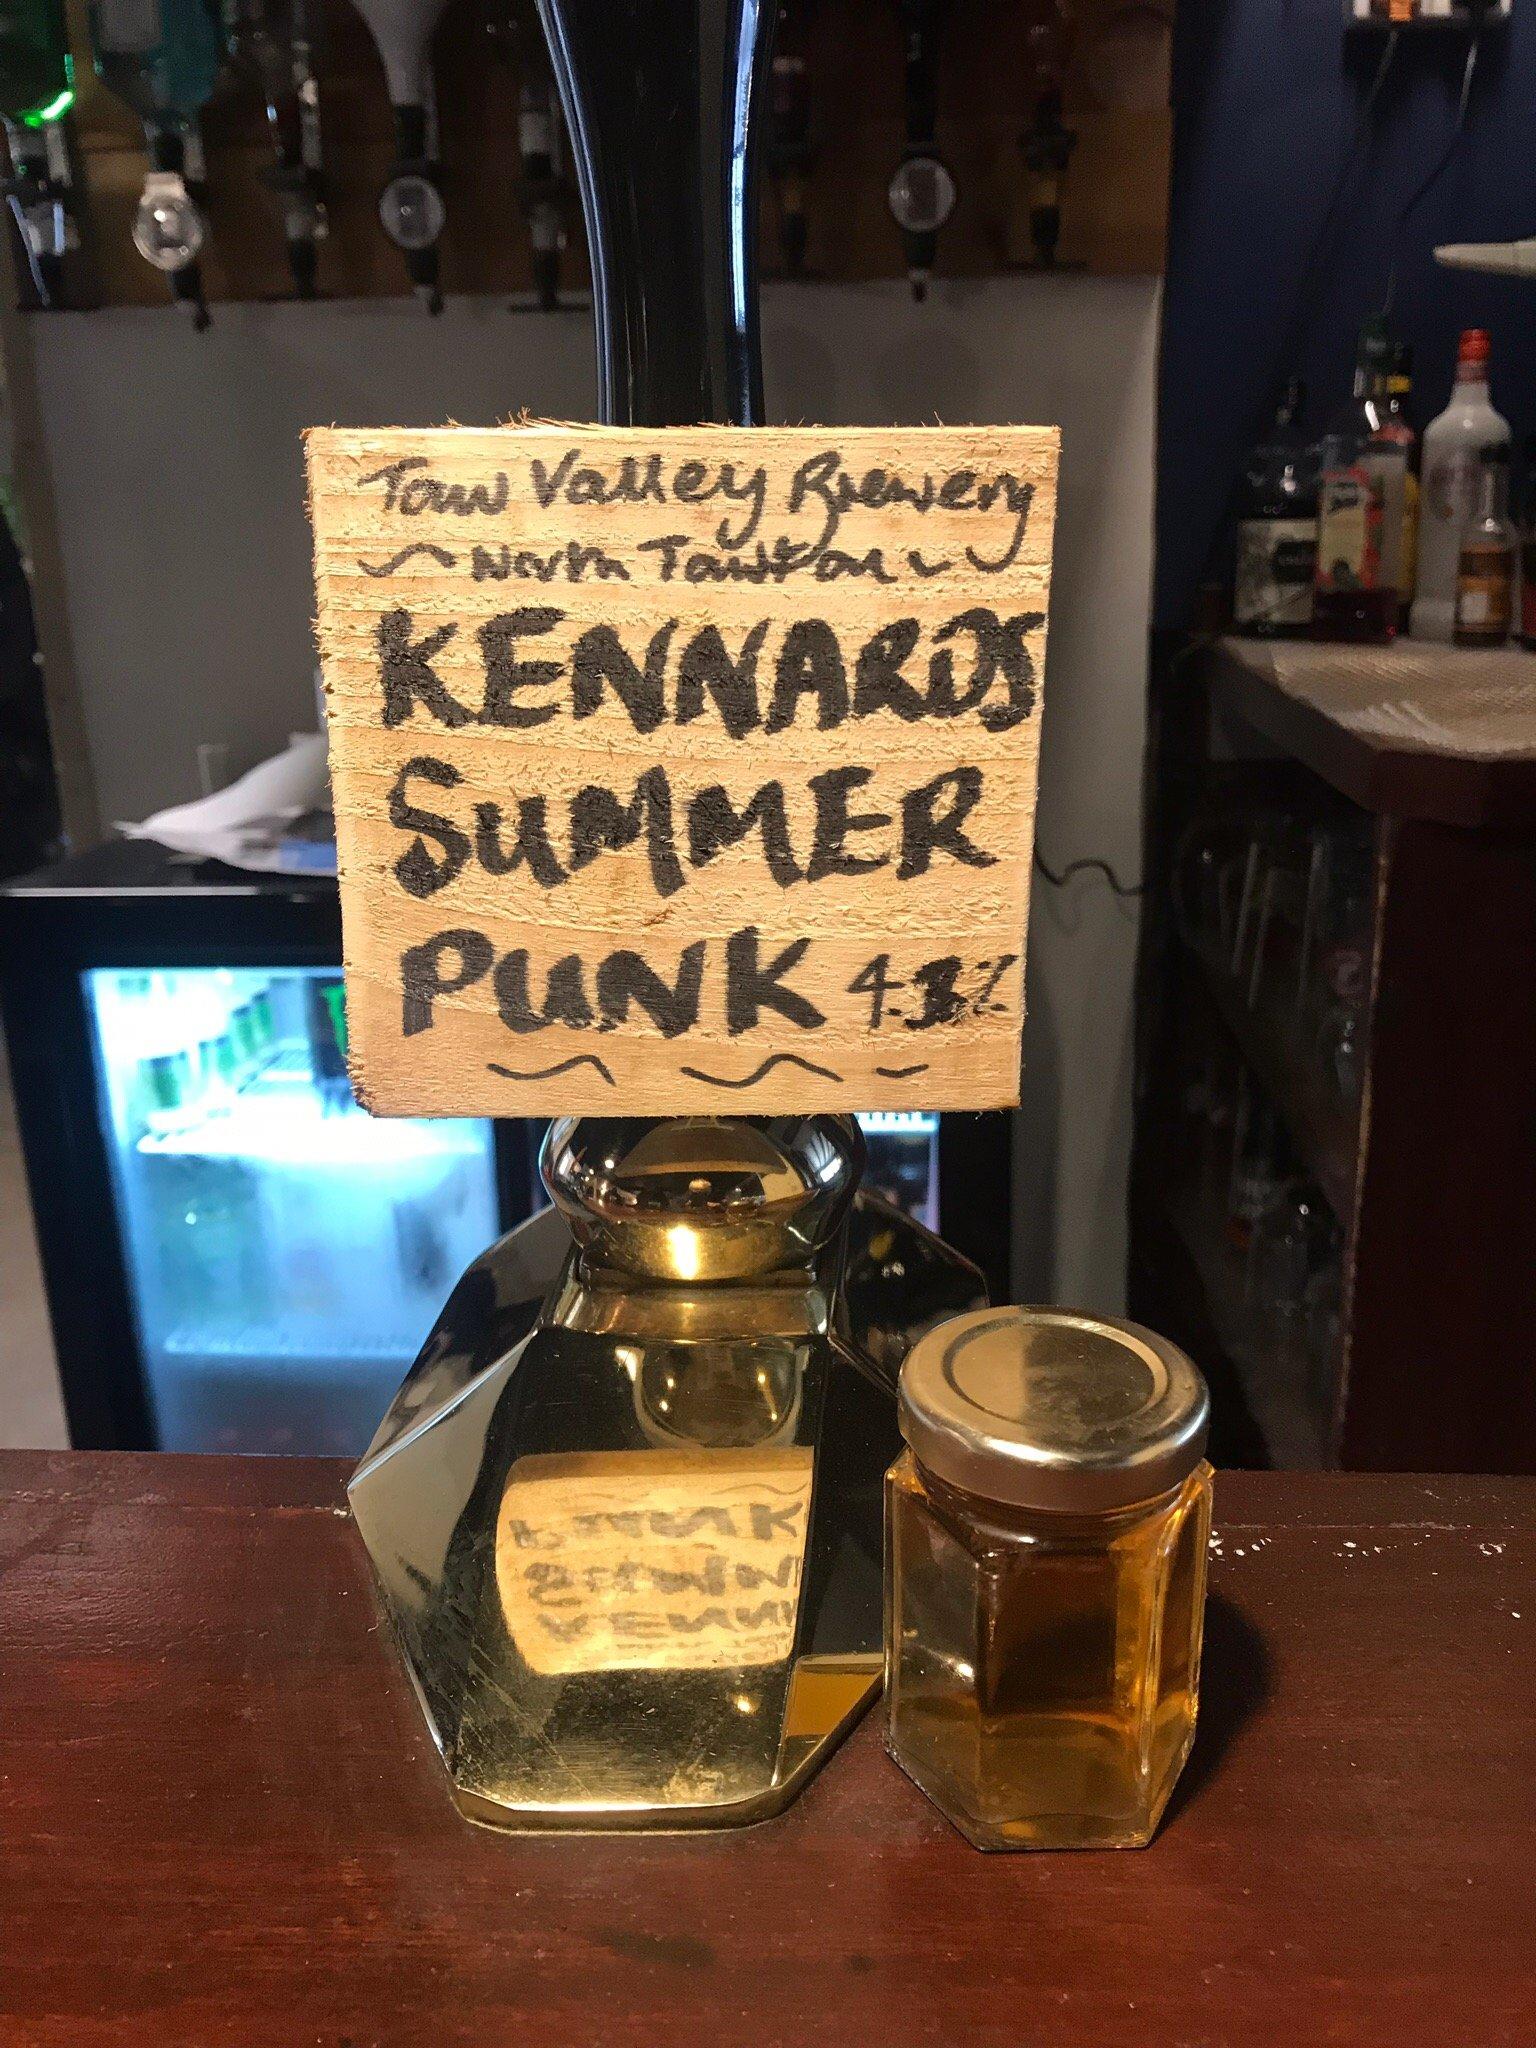 Taw Valley Brewery
~ North Tawton ~
KENNARDS
SUMMER
PUNK 4.3%